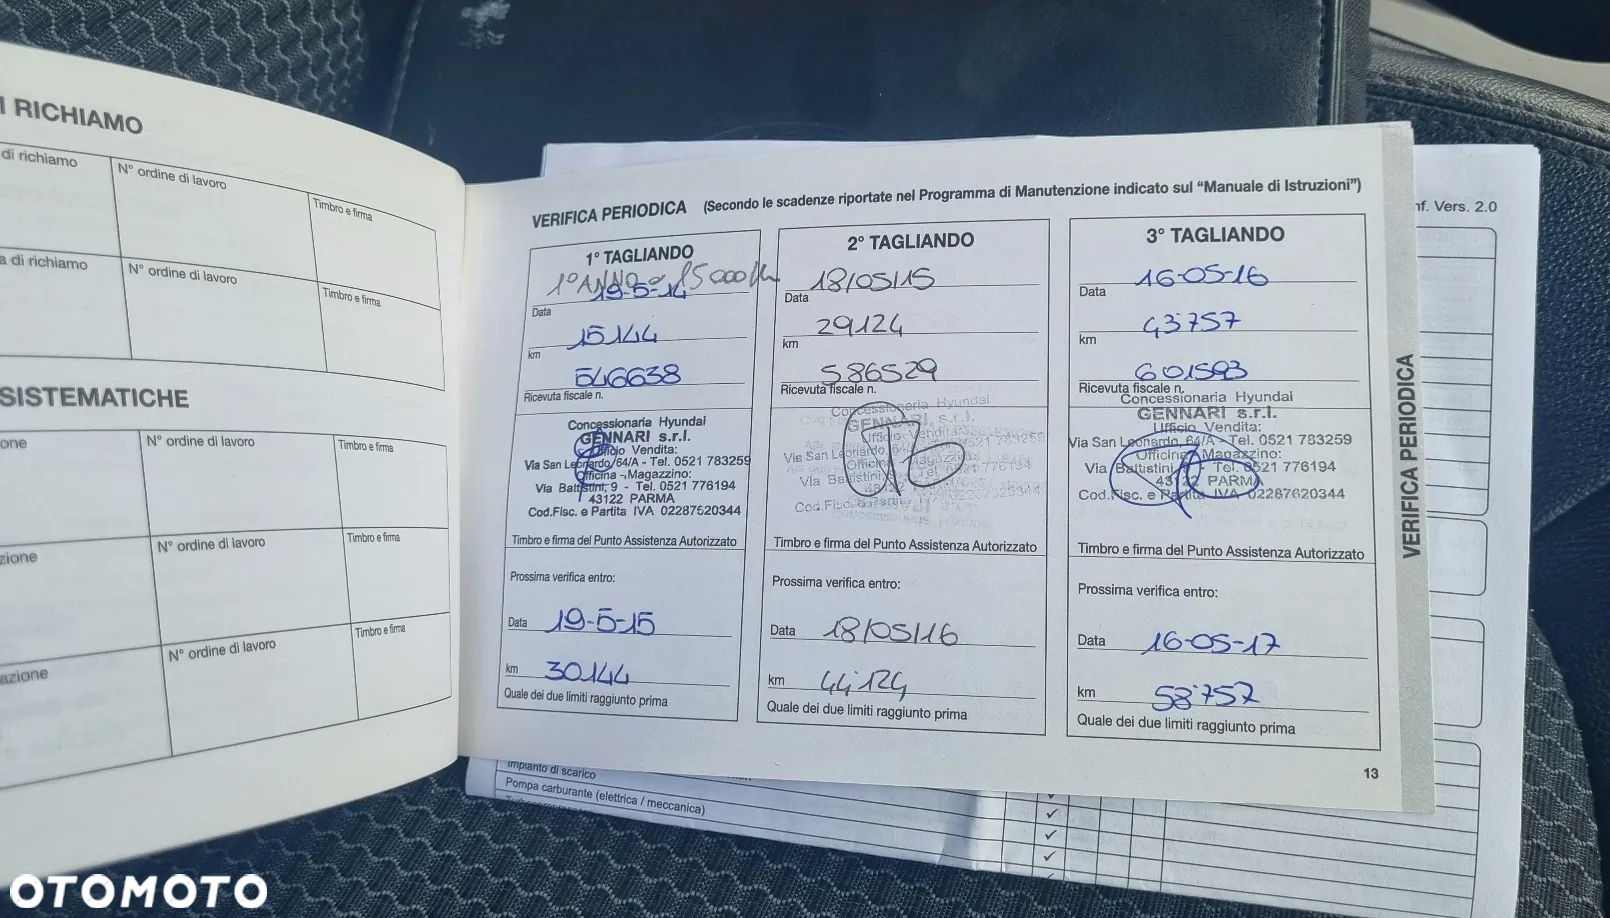 I RICHIAMO
di richiamo
N° ordine di lavoro
Timbro e firma
a di richiamo
N° ordine di lavoro
Timbro e firma
SISTEMATICHE
one
N° ordine di lavoro
Timbro e firma
zione
N° ordine di lavoro
Timbro e firma
azione
N° ordine di lavoro
Timbro e firma
VERIFICA PERIODICA (Secondo le scadenze riportate nel Programma di Manutenzione indicato sul “Manuale di Istruzioni”)
1° TAGLIANDO
1° ANNO o 15000 Km
19-5-14
Data
15144
km
546638
Ricevuta fiscale n.
Concessionaria Hyundai
GENNARI s.r.l.
Ufficio Vendita:
Via San Leonardo, 64/A - Tel. 0521 783259
Officina - Magazzino:
Via Battistini, 9 - Tel. 0521 776194
43122 PARMA
Cod.Fisc. e Partita IVA 02287620344
Timbro e firma del Punto Assistenza Autorizzato
Prossima verifica entro:
Data 19-5-15
km 30144
Quale dei due limiti raggiunto prima
2° TAGLIANDO
18/05/15
Data
29124
km
586529
Ricevuta fiscale n.
Concessionaria Hyundai
GENNARI s.r.l.
Ufficio Vendita:
Via San Leonardo, 64/A 0521 783259
Officina Magazzino:
Via Battistini, 0521 776194
Cod.Fisc.
Timbro e firma del Punto Assistenza Autorizzato
Prossima verifica entro:
Data 18/05/16
km 44124
Quale dei due limiti raggiunto prima
3° TAGLIANDO
16-05-16
Data
43757
km
601593
Ricevuta fiscale n.
Concessionaria Hyundai
GENNARI s.r.l.
Ufficio Vendita:
Via San Leonardo, 64/A - Tel. 0521 783259
Officina Magazzino:
Via Battistini, Tel. 0521 776194
43122 PARMA
Cod.Fisc. e Partita IVA 02287620344
Timbro e firma del Punto Assistenza Autorizzato
Prossima verifica entro:
Data 16-05-17
km 58757
Quale dei due limiti raggiunto prima
13
VERIFICA PERIODICA
nf. Vers. 2.0
Impianto di scarico
Pompa carburante (elettrica / meccanica)
OTOMOTO